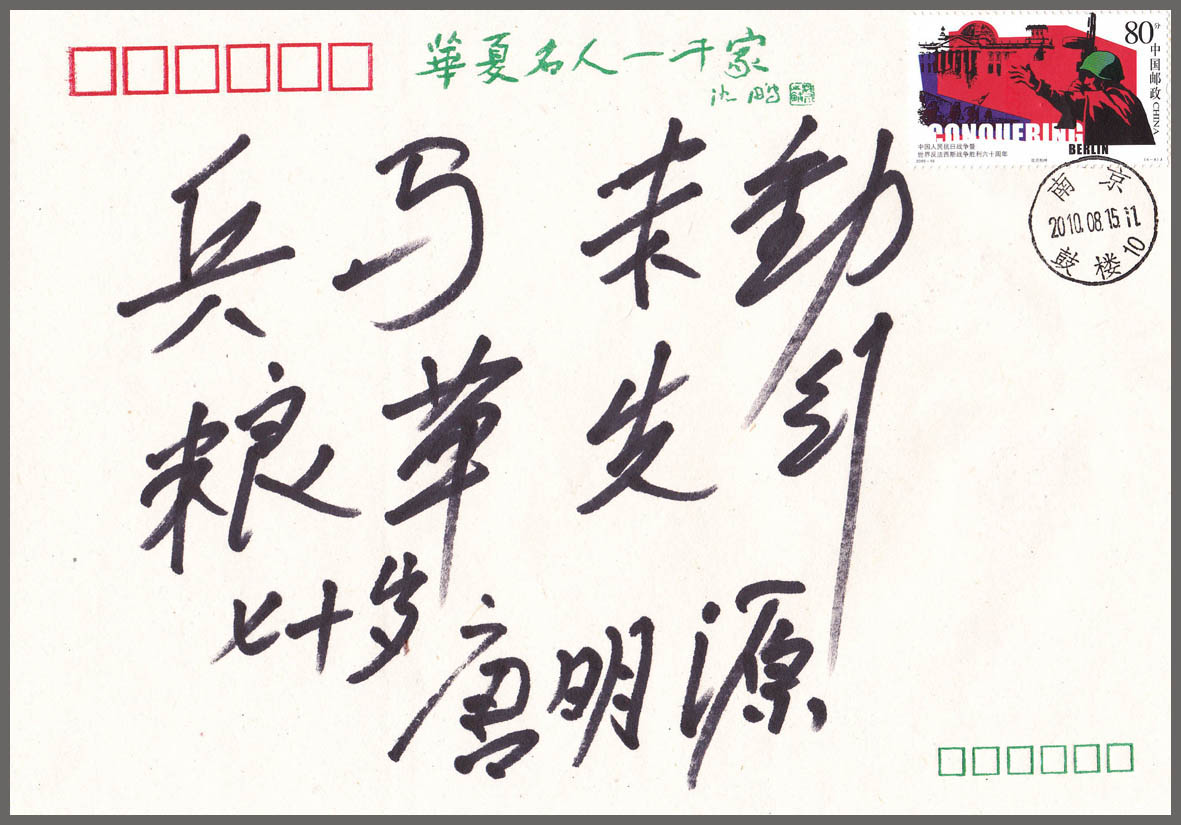 華夏名人一千家
沈鹏
80分
中国邮政 CHINA
CONQUERING
BERLIN
中国人民抗日战争暨
世界反法西斯战争胜利六十周年
2005-16
南京
2010.08.15.11
鼓楼 10
兵马未動
粮草先行
七十岁 唐明源